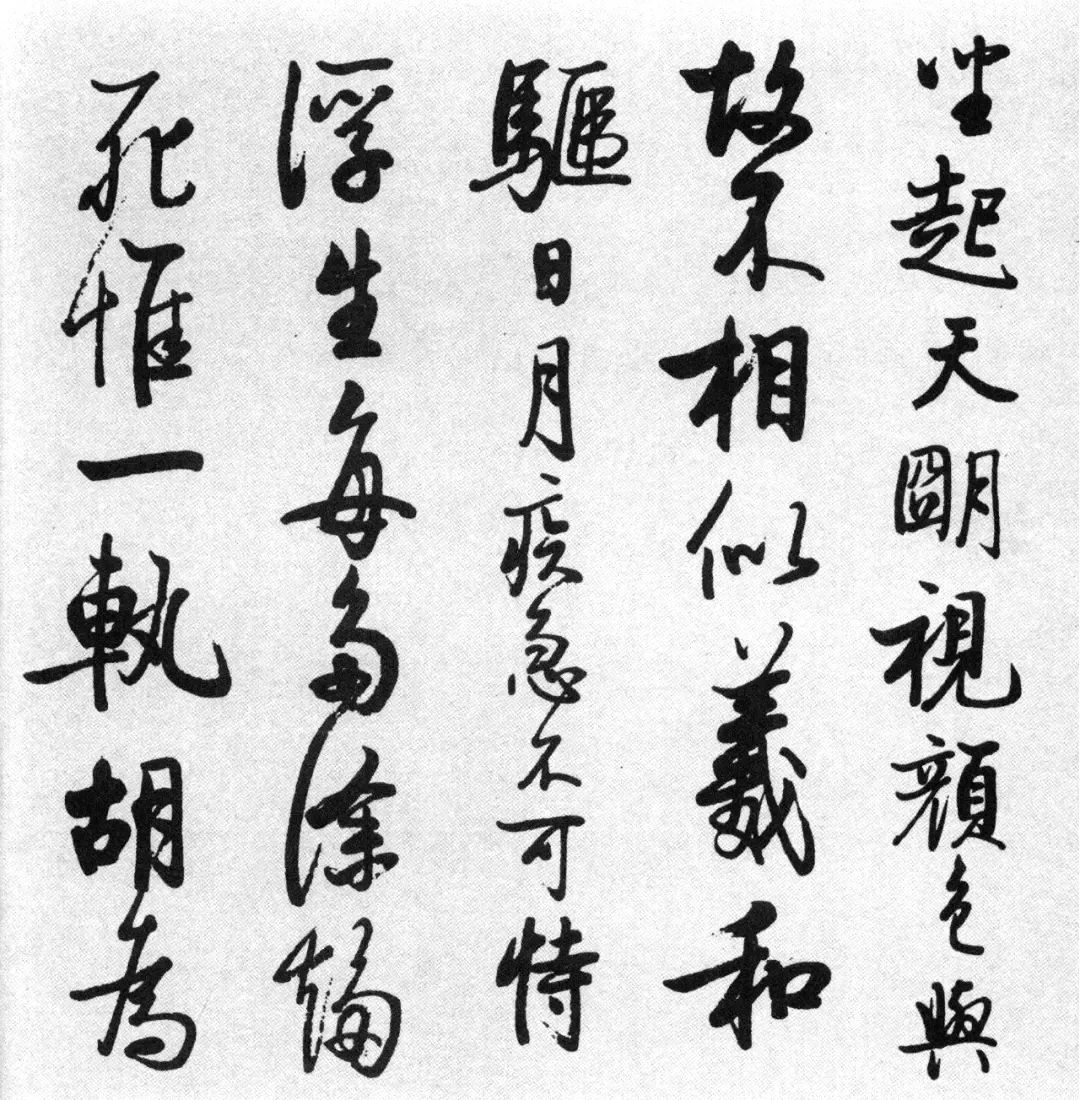 坐起天朙視顏色與
故不相似羲和
驅日月疾急不可恃
浮生每多塗趍
死惟一軌胡為